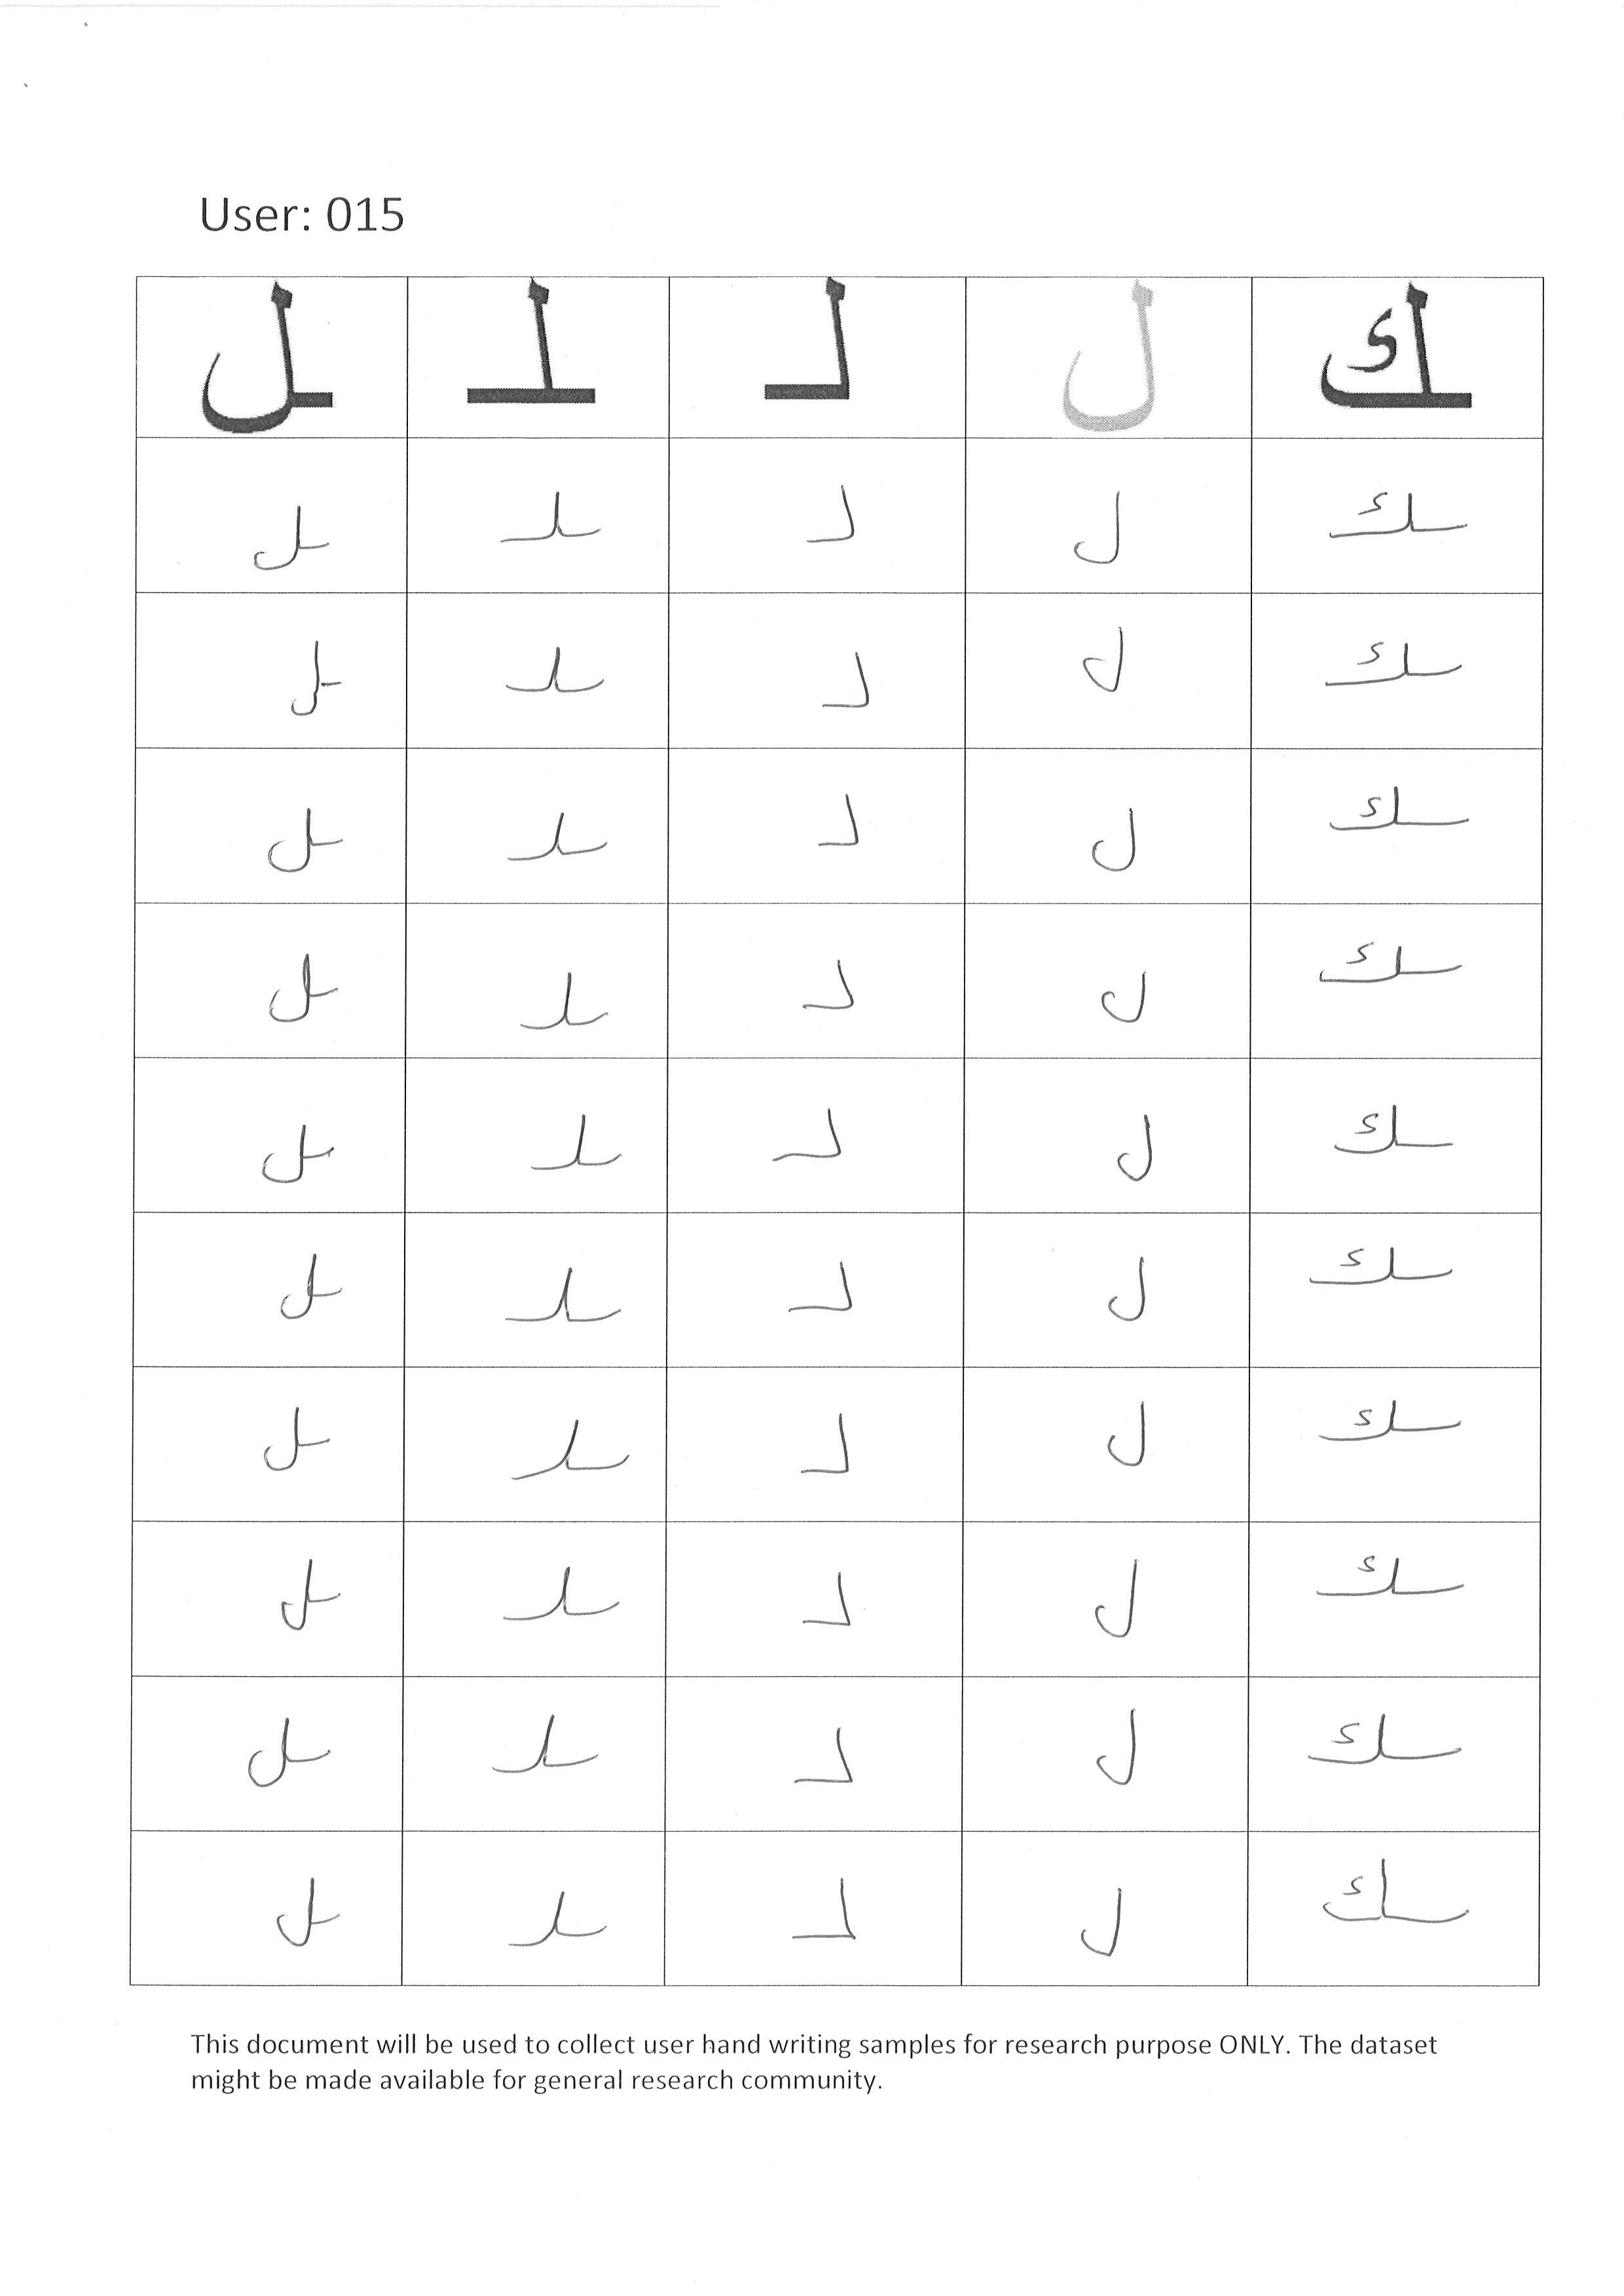 User: 015
ـك ل لـ ـلـ ـل
ـك ل لـ ـلـ ـل
ـك ل لـ ـلـ ـل
ـك ل لـ ـلـ ـل
ـك ل لـ ـلـ ـل
ـك ل لـ ـلـ ـل
ـك ل لـ ـلـ ـل
ـك ل لـ ـلـ ـل
ـك ل لـ ـلـ ـل
ـك ل لـ ـلـ ـل
ـك ل لـ ـلـ ـل
This document will be used to collect user hand writing samples for research purpose ONLY. The dataset
might be made available for general research community.